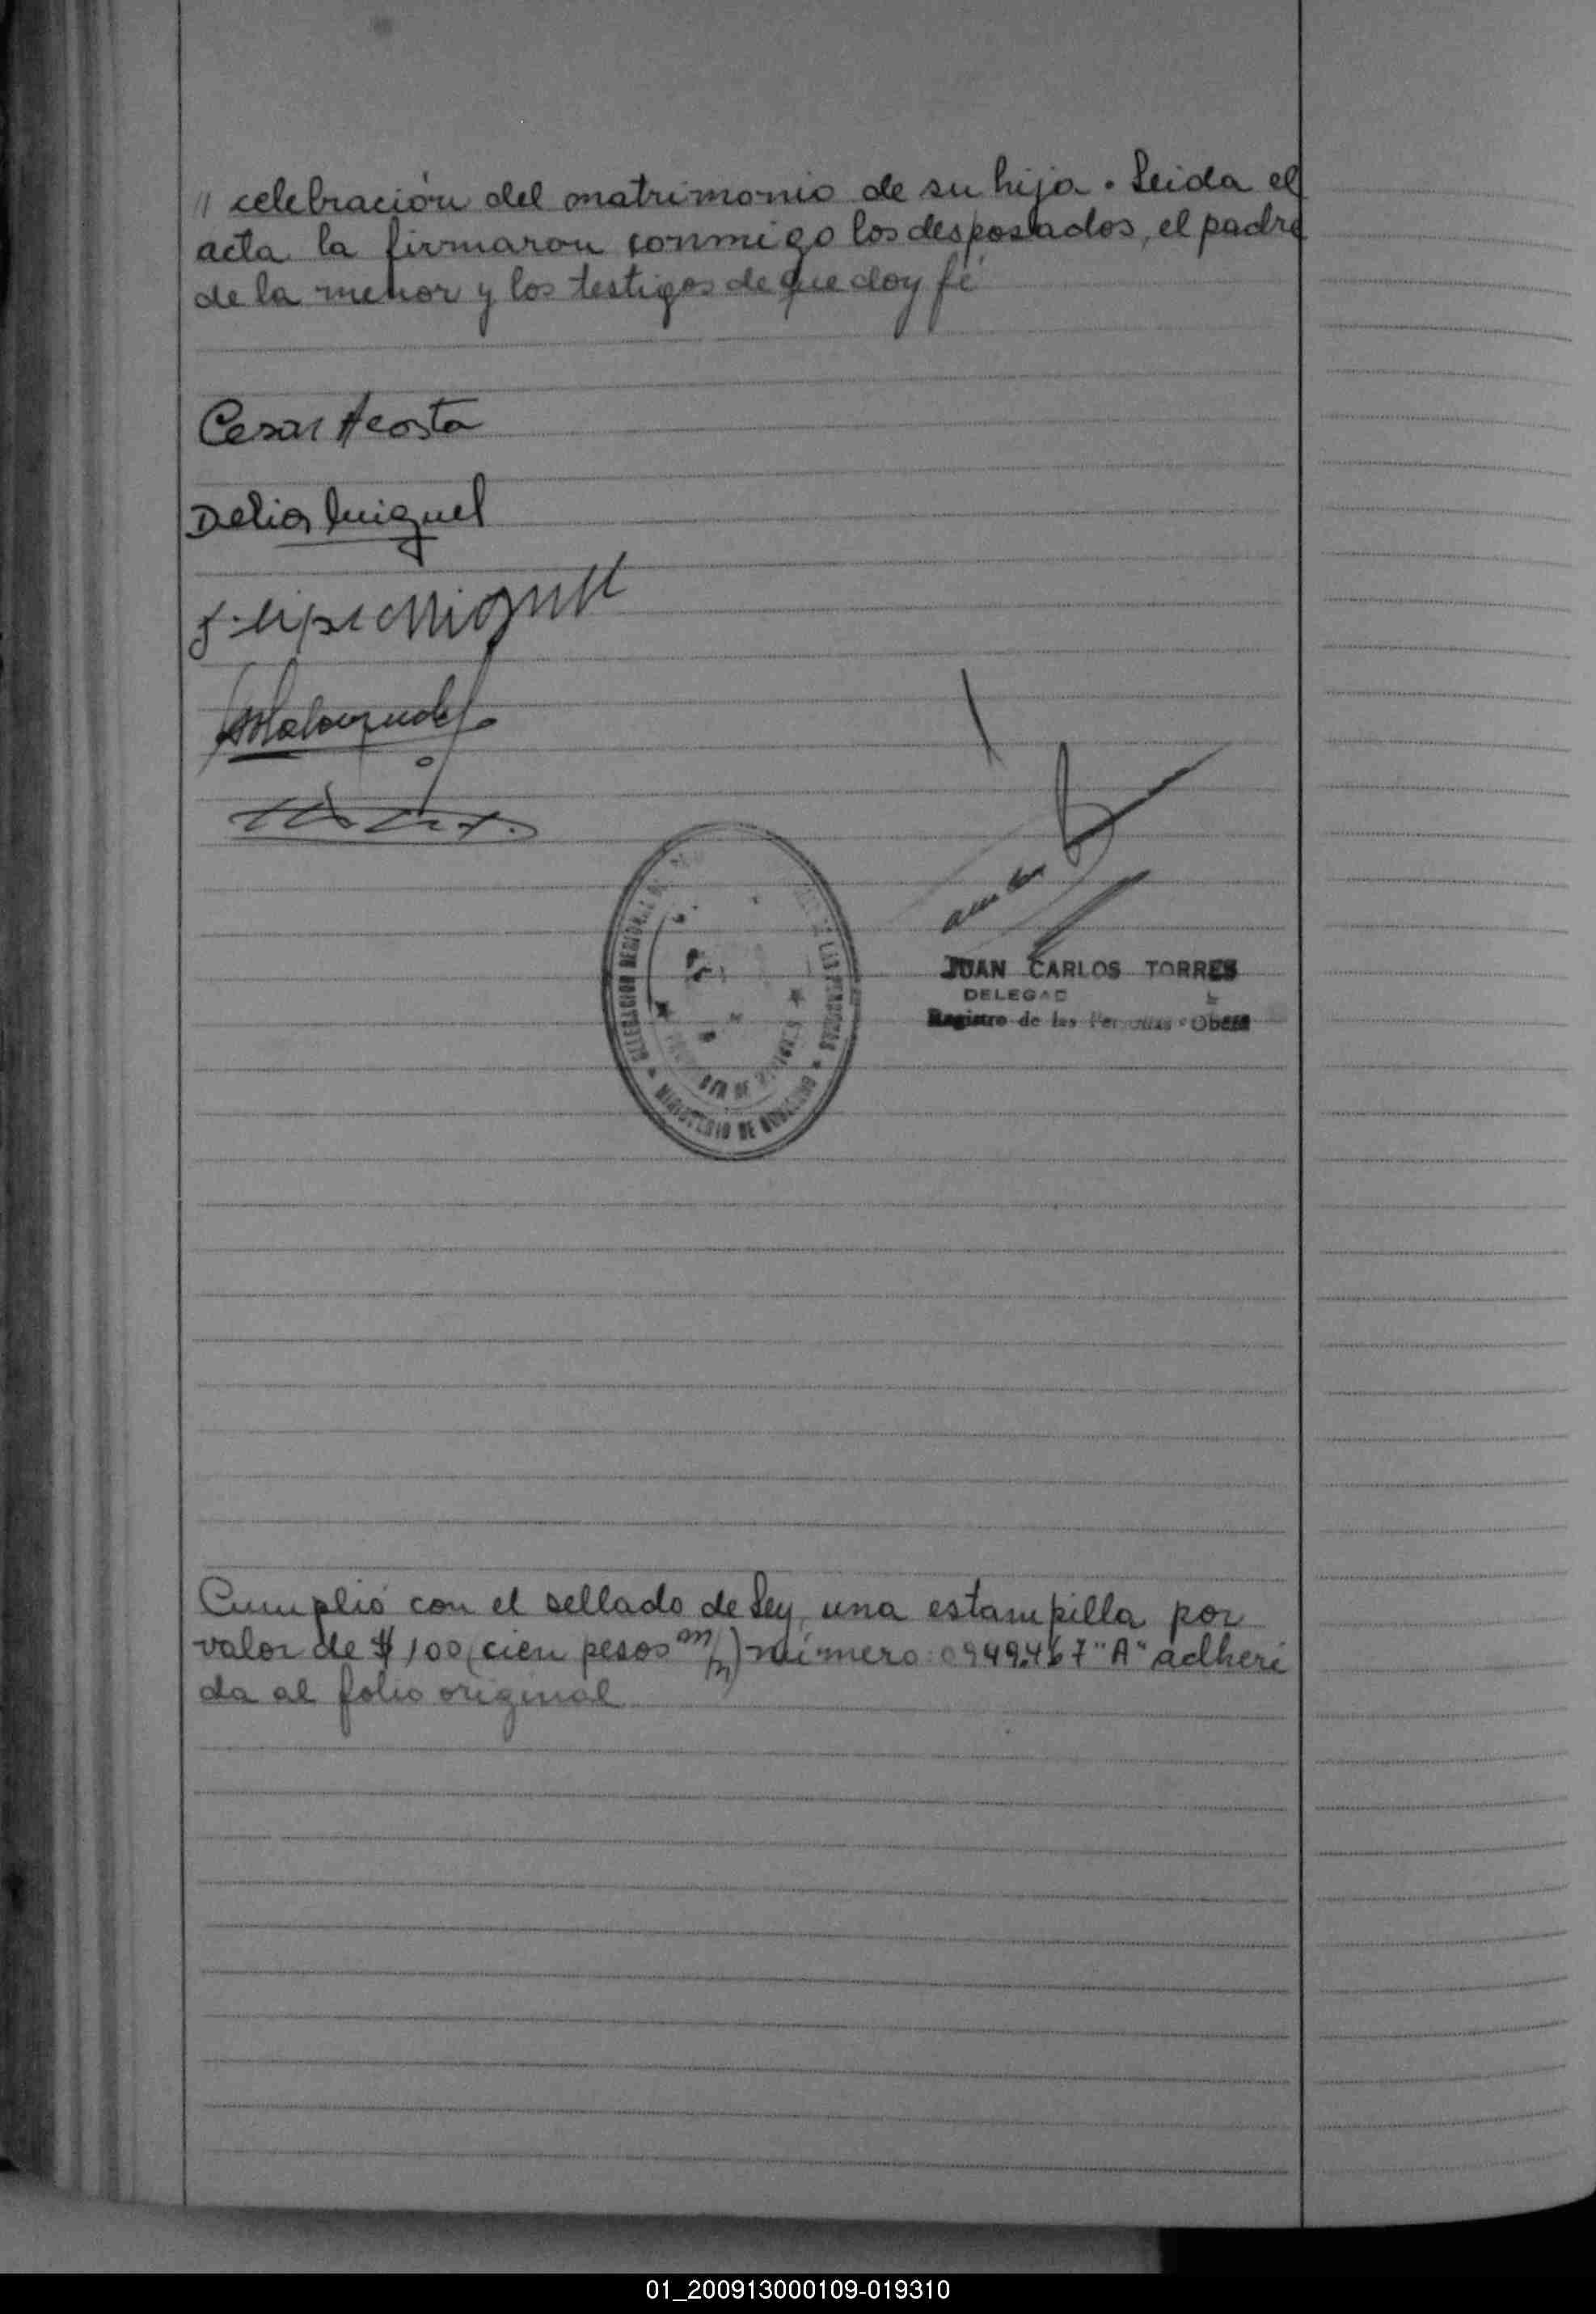 // celebración del matrimonio de su hija. Leida el
acta la firmaron conmigo los desposados, el padre
de la menor y los testigos de que doy fé
Cesar Acosta
Delia Miguel
Felipe Miguel
JUAN CARLOS TORRES
DELEGAD
Registro de las Personas - Oberá
DELEGACION REGIONAL DE LAS PERSONAS
MINISTERIO DE GOBIERNO
Cumplió con el sellado de Ley, una estampilla por
valor de $ 100 (cien pesos m/n) número: 0949467 "A" adheri
da al folio original
01_200913000109-019310